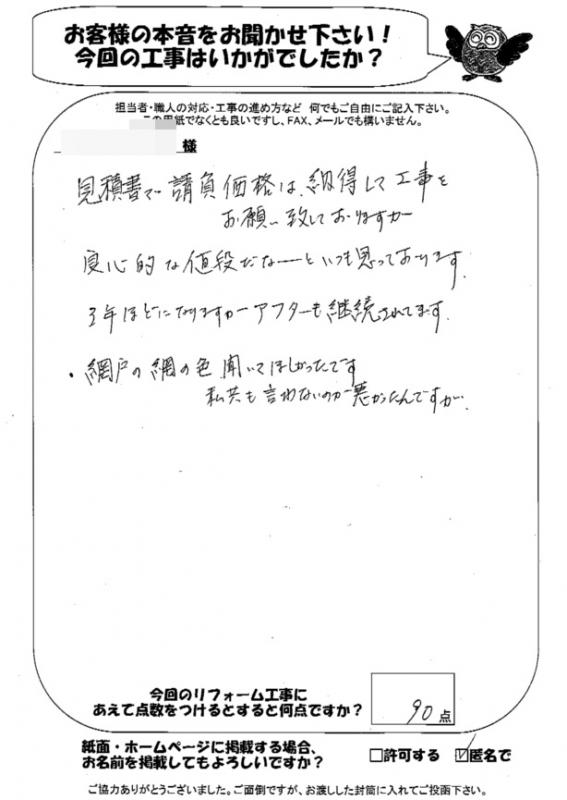 お客様の本音をお聞かせ下さい!
今回の工事はいかがでしたか?
担当者・職人の対応・工事の進め方など 何でもご自由にご記入下さい。
この用紙でなくとも良いですし、FAX、メールでも構いません。
様
見積書で請負価格は、納得して工事を
お願い致しておりますが
良心的な値段だなーといつも思っております。
3年ほどになりますがアフターも継続されてます。
・網戸の網の色 聞いてほしかったです
私共も言わないのが悪かったんですが、
今回のリフォーム工事に
あえて点数をつけるとすると何点ですか?
90点
紙面・ホームページに掲載する場合、
お名前を掲載してもよろしいですか?
□許可する ☑匿名で
ご協力ありがとうございました。ご面倒ですが、お渡しした封筒に入れてご投函下さい。